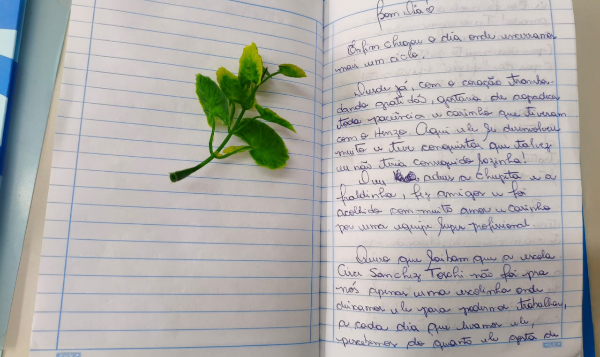 Bom Dia
Enfim chegou o dia onde encerramos
mais um ciclo.
Desde já, com o coração transbor-
dando gratidão, gostaria de agradecer
toda paciência e carinho que tiveram
com o Henzo. Aqui ele se desenvolveu
muito e teve conquistas que talvez
eu não teria conseguido sozinha!
deixou a chupeta e a
fraldinha, fez amigos e foi
acolhido com muito amor e carinho
por uma equipe super profissional.
Quero que saibam que a escola
Sanchez não foi pra
nós apenas uma escolinha onde
deixamos ele para podermos trabalhar,
a cada dia que levamos ele,
percebemos do quanto ele gosta de